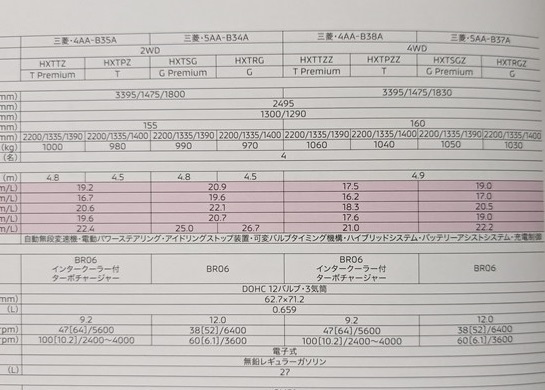 三菱・4AA-B35A 三菱・5AA-B34A 三菱・4AA-B38A 三菱・5AA-B37A
2WD 4WD
HXTTZ HXTPZ HXTSG HXTRG HXTTZZ HXTPZZ HXTSGZ HXTRGZ
T Premium T G Premium G T Premium T G Premium G
mm) 3395/1475/1800 3395/1475/1830
mm) 2495
mm) 1300/1290
mm) 155 160
mm) 2200/1335/1390 2200/1335/1400 2200/1335/1390 2200/1335/1400 2200/1335/1390 2200/1335/1400 2200/1335/1390 2200/1335/1400
(kg) 1000 980 990 970 1060 1040 1050 1030
(名) 4
(m) 4.8 4.5 4.8 4.5 4.9
m/L) 19.2 20.9 17.5 19.0
m/L) 16.7 19.6 16.2 17.0
m/L) 20.6 22.1 18.3 20.5
m/L) 19.6 20.7 17.6 19.0
m/L) 22.4 25.0 26.7 21.0 22.2
自動無段変速機・電動パワーステアリング・アイドリングストップ装置・可変バルブタイミング機構・ハイブリッドシステム・バッテリーアシストシステム・充電制御
BR06 インタークーラー付 ターボチャージャー BR06 BR06 インタークーラー付 ターボチャージャー BR06
DOHC 12バルブ・3気筒
mm) 62.7×71.2
(L) 0.659
9.2 12.0 9.2 12.0
rpm) 47[64]/5600 38[52]/6400 47[64]/5600 38[52]/6400
rpm) 100[10.2]/2400〜4000 60[6.1]/3600 100[10.2]/2400〜4000 60[6.1]/3600
電子式
無鉛レギュラーガソリン
(L) 27